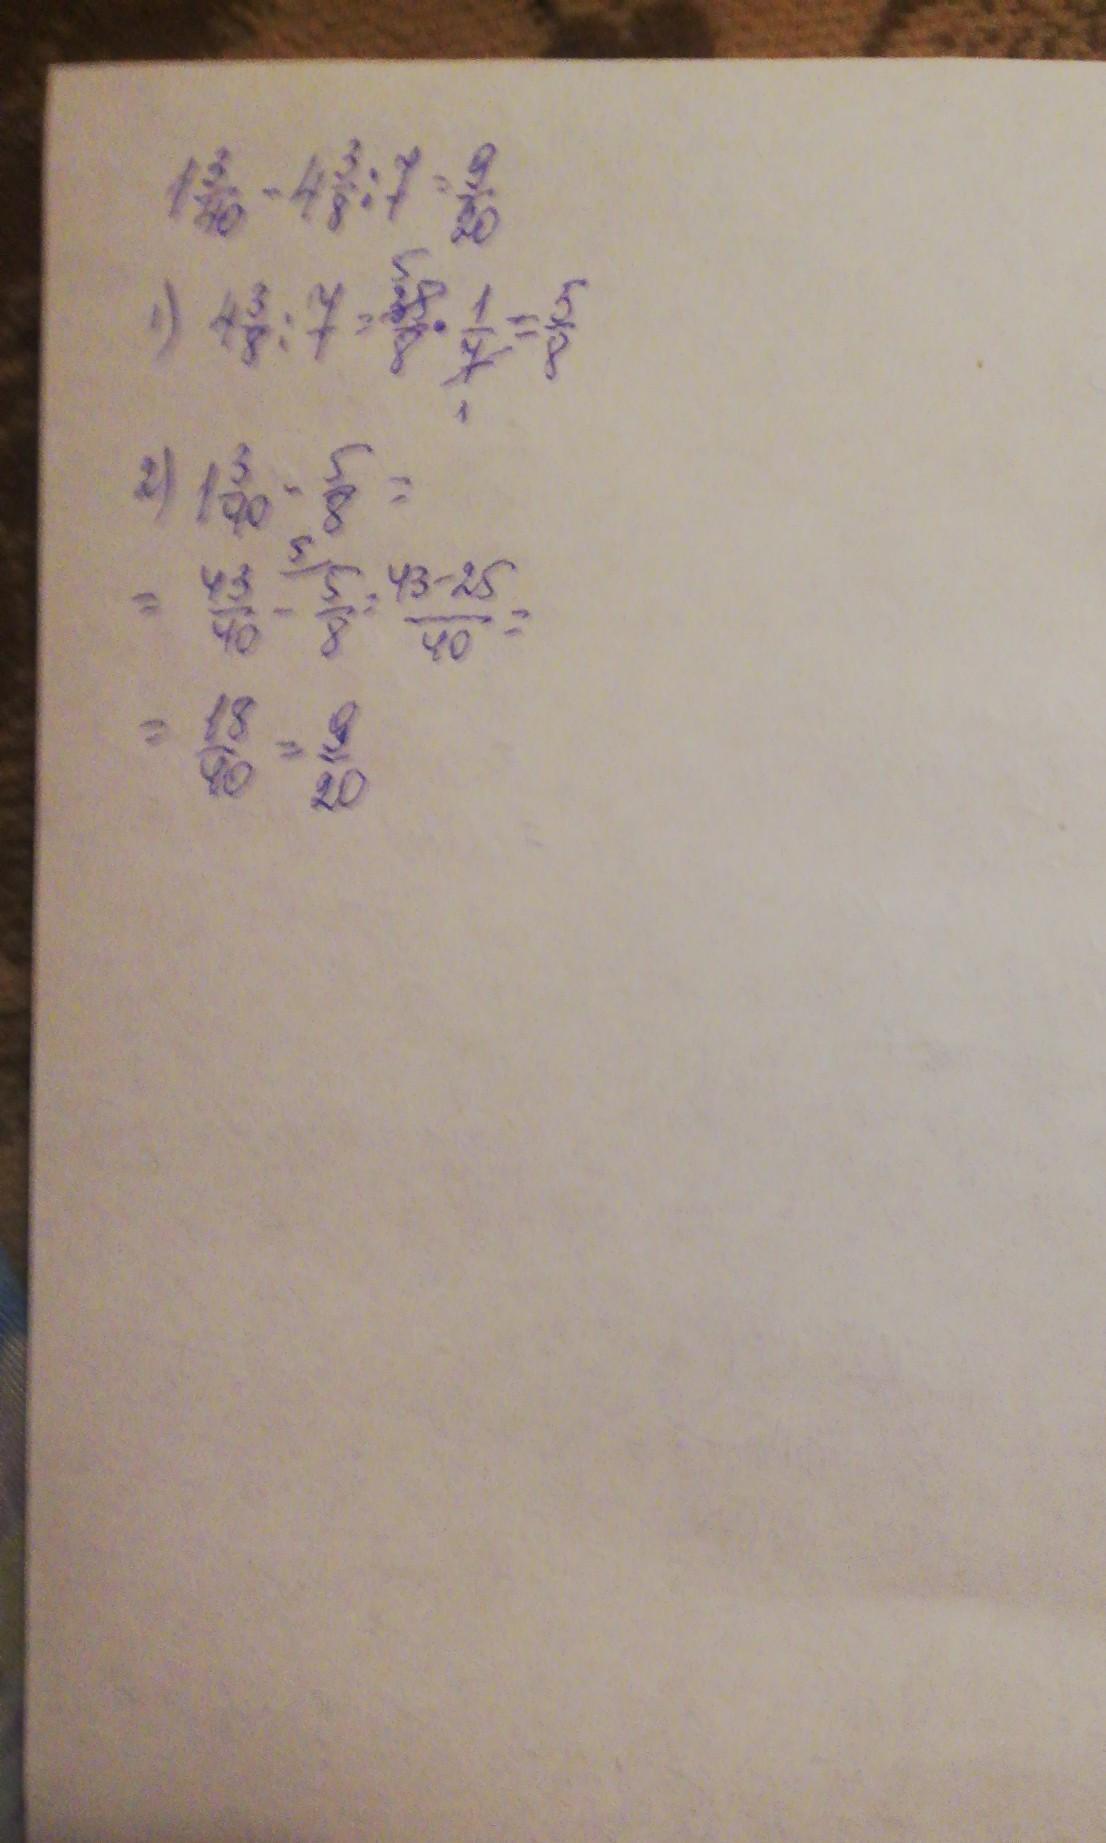 1 3/40 - 4 3/8 : 7 = 9/20
1) 4 3/8 : 7 = /8 · 1/7 = 5/8
2) 1 3/40 - 5/8 =
= 43/40 - 5/8 = 43-25/40 =
= 18/40 = 9/20